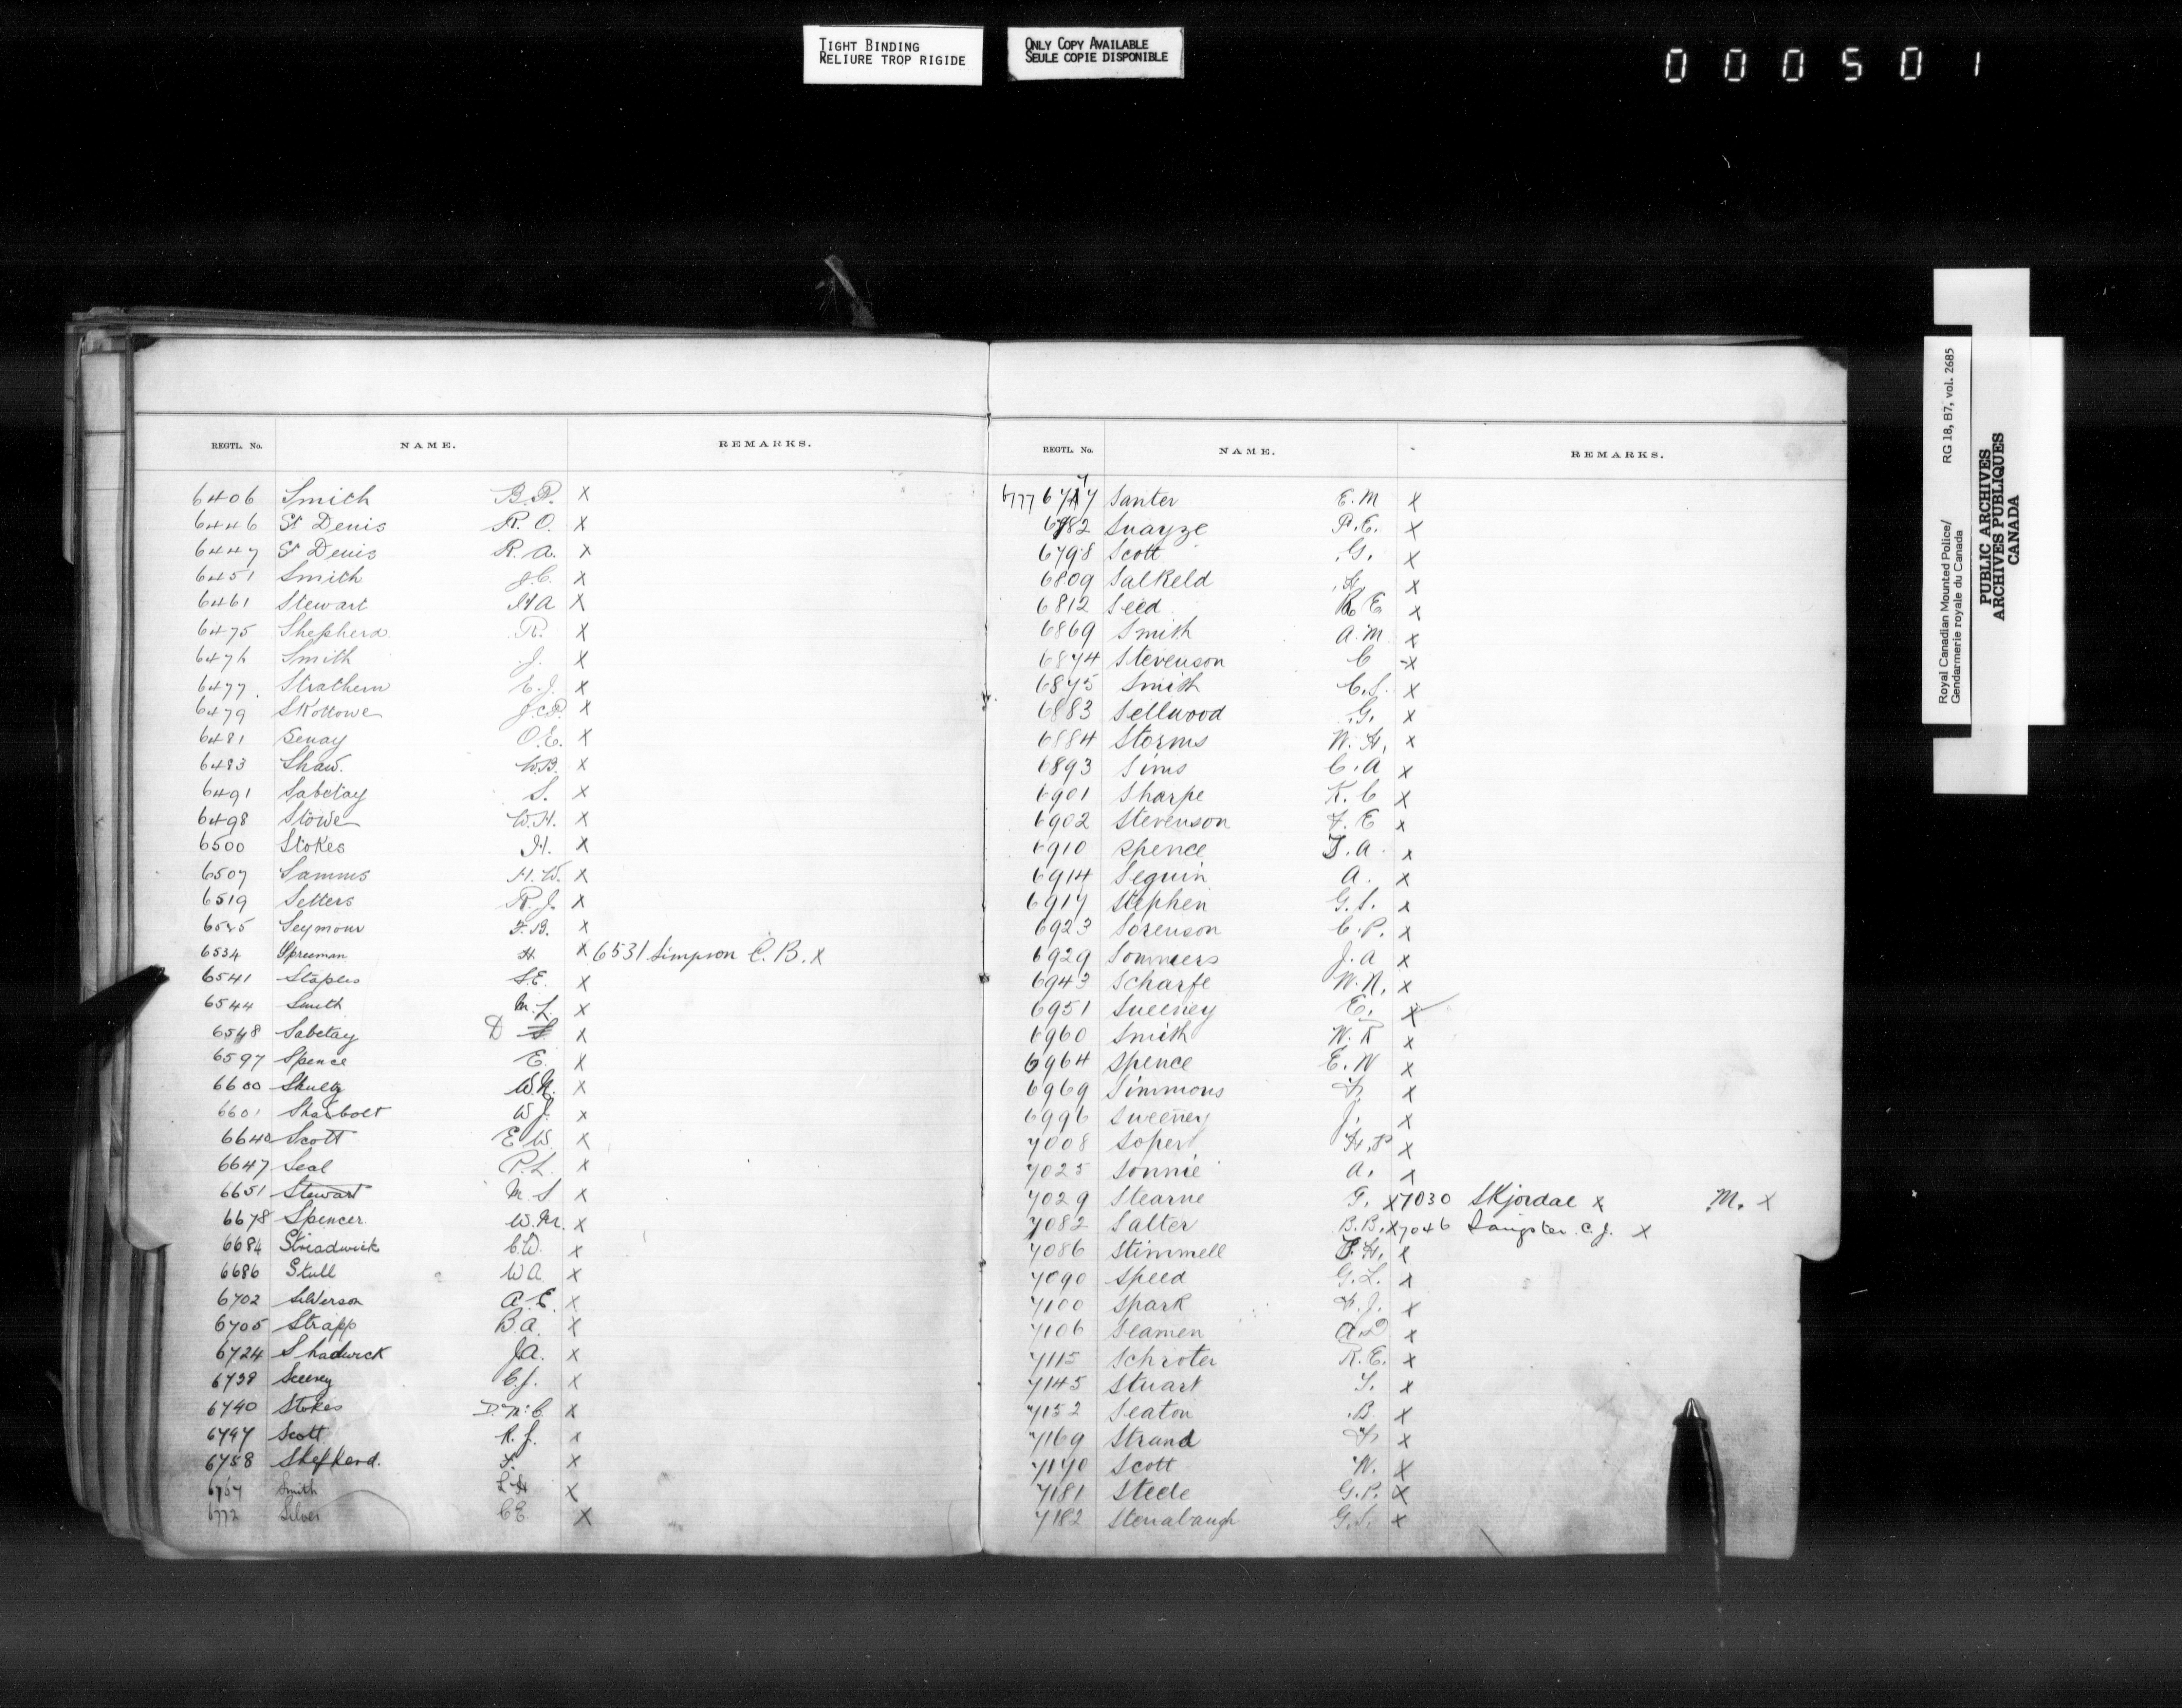 TIGHT BINDING
RELIURE TROP RIGIDE
ONLY COPY AVAILABLE
SEULE COPIE DISPONIBLE
000501
REGTL. No. NAME. REMARKS.
6406 Smith B.P. x
6446 St Denis R. O. x
6447 St Denis R. A. x
6451 Smith J.C. x
6461 Stewart H A x
6475 Shepherd R. x
6476 Smith J. x
6477 Strathern E.J. x
6479 Skottowe J.C.P. x
6481 Senay O.E. x
6483 Shaw. W.B. x
6491 Sabetay S. x
6498 Stowe W.H. x
6500 Stokes H. x
6507 Samms H.W. x
6519 Setters R.J. x
6525 Seymour F.B. x
6534 Spreeman H. x 6531 Simpson C. B. x
6541 Staples S.E. x
6544 Smith M.L. x
6548 Sabetay D x
6597 Spence E. x
6600 Shultz W.N. x
6601 Sharbolt W J. x
6640 Scott E W. x
6647 Seal P.L. x
6651 Stewart M. S x
6678 Spencer W.M. x
6684 Streadwick C.W. x
6686 Stull W A x
6702 A. E. x
6705 Strapp B.A. x
6724 Shadwick J A. x
6738 C.J. x
6740 Stokes D. McC. x
6747 Scott R. J. x
6758 Shepherd. F. x
6767 Smith L H x
6772 Silver C E. x
REGTL. No. NAME. REMARKS.
6777 Santer E. M x
6782 Swayze P. E. x
6798 Scott G. x
6809 Salkeld H. x
6812 Seed R. E x
6869 Smith A. M. x
6874 Stevenson C x
6875 Smith C. S. x
6883 Sellwood G. x
6884 Storms W. H. x
6893 Sims C. A x
6901 Sharpe K. C x
6902 Stevenson F. E x
6910 Spence T. A. x
6914 Seguin A. x
6917 Stephen G. S. x
6923 Sorenson C. P. x
6929 Sommers J. A x
6943 Scharfe W. N. x
6951 Sweeney E. x
6960 Smith W. R x
6964 Spence E. W x
6969 Simmons F. x
6996 Sweeney J. x
7008 Soper H. P x
7025 Sonnie A. x
7029 Stearne G. x 7030 Skjordal x M. x
7082 Salter B.B. x 7046 Sangster. C. J. x
7086 Stimmell F. H. x
7090 Speed G. L. x
7100 Spark F. J. x
7106 Seamen A x
7115 Schroter R. E. x
7145 Stuart T. x
7152 Seaton B. x
7169 Strand F. x
7170 Scott W. x
7181 Steele G. P. x
7182 Stenabaugh G. S. x
Royal Canadian Mounted Police/ RG 18, B7, vol. 2685
Gendarmerie royale du Canada
PUBLIC ARCHIVES
ARCHIVES PUBLIQUES
CANADA